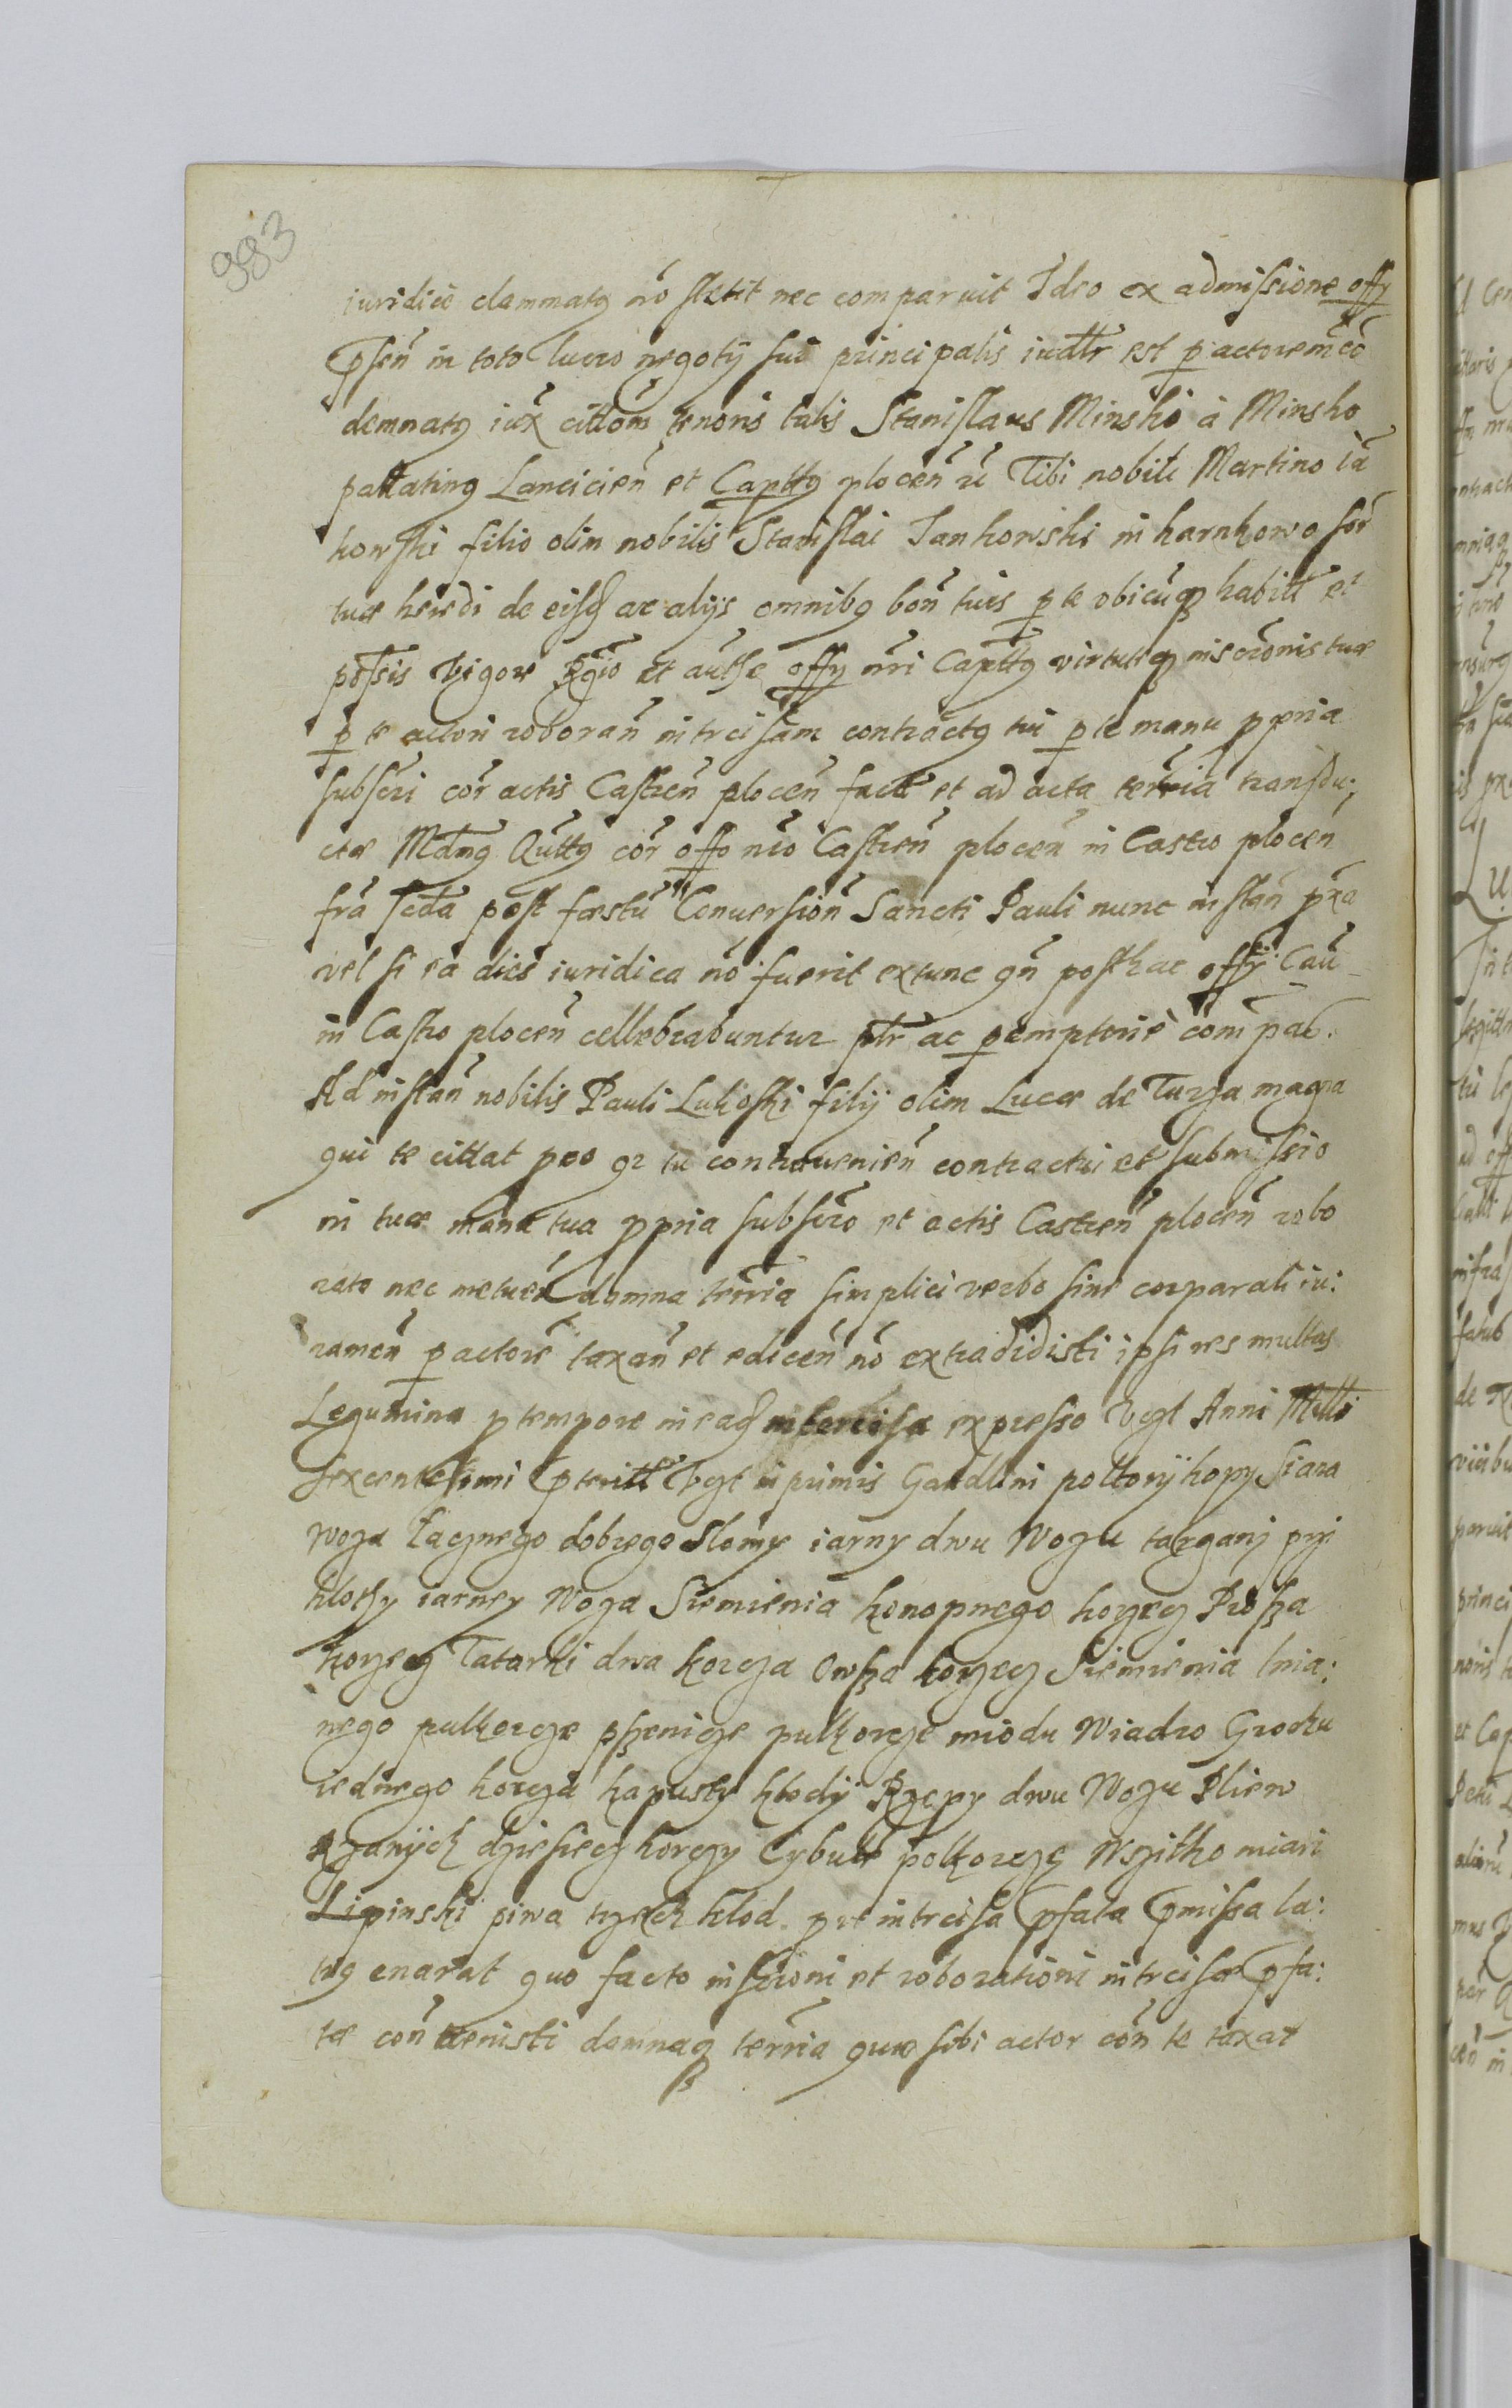 983
iuridicè clammatg nō stetit nec comparuit Ideo ex admissione offy
psēn in toto lucro negotÿ sui principalis iudltr est p actorem cō
demnatg iux cittōm tenoris talis Stanislaus Minski à Minsko
pallating Lancicień et Capttg plocēn zē Tibi nobili Martino Iā
kowski filio olim nobilis Stanislai Iankowski in karnkowo sor
tuæ herēdi de eisd ac alijs omnibg bōn tuis p te vbicūq habitt et
possis vigore Rgio et autħe offy nri Capttg virtuteq inscrōnis tuæ
p te actori roborań intrcisam contractg tui p te manu ppria
subscri cōr actis Castrēn plocēn fact et ad acta terria transdu;
ctæ Mdāng Qūttg cōr offo nrō Castrēn plocēn in Castro plocēn
frā scdā post fæstū Conuersioń Sancti Pauli nunc instań pxa
vel si ea dies iuridica nō fuerit extunc gn̄ posthac offÿ Cāu
in Castro plocēn cellebrabuntur ptr ac pemptoriè compar.
Ad instań nobilis Pauli Lukoski filÿ olim Lucæ de Turza magna
qui te cittat pro qz tu contrauenień contractui et submissio
ni tuæ manu tua ppria subscrō et actis Castrēn plocēn robo
rato nec metuēn damna terria simplici verbo sine corparali iu:
ramēn p actorē taxań et edicēn nō extradidisti ipsi res multas
Legumina p tempore in ead intercisa expresso vgt Anni Milli
sexcentesimi pteritt vgt inprimis Gardlini poltorÿ kopy Siana
woza łącznego dobrego Slomy iarny dwu Wozu targanj pzi
klotky iarney Woza Siemienia konopnego korzecz Prosza
korzecz Tatarki dwa korcza Owsza korzecz Siemienia lnia:
nego pulkorcze pszenicze pulkorcze miodu Wiadro Grochu
iednego korcza kapusty kłodÿ Rzepy dwu Wozu Pliew
Rzanÿch dziesiecz korczy Cybule polkorczę Wszitko miari
Lipinski piwa trzech klod prt intrcisa pfata pmissa la:
tig enarat quo facto inscrioni et roborationi intrcisæ pfa:
tæ cōn trenisti damnaq terria quæ sibi actor cōn te taxat